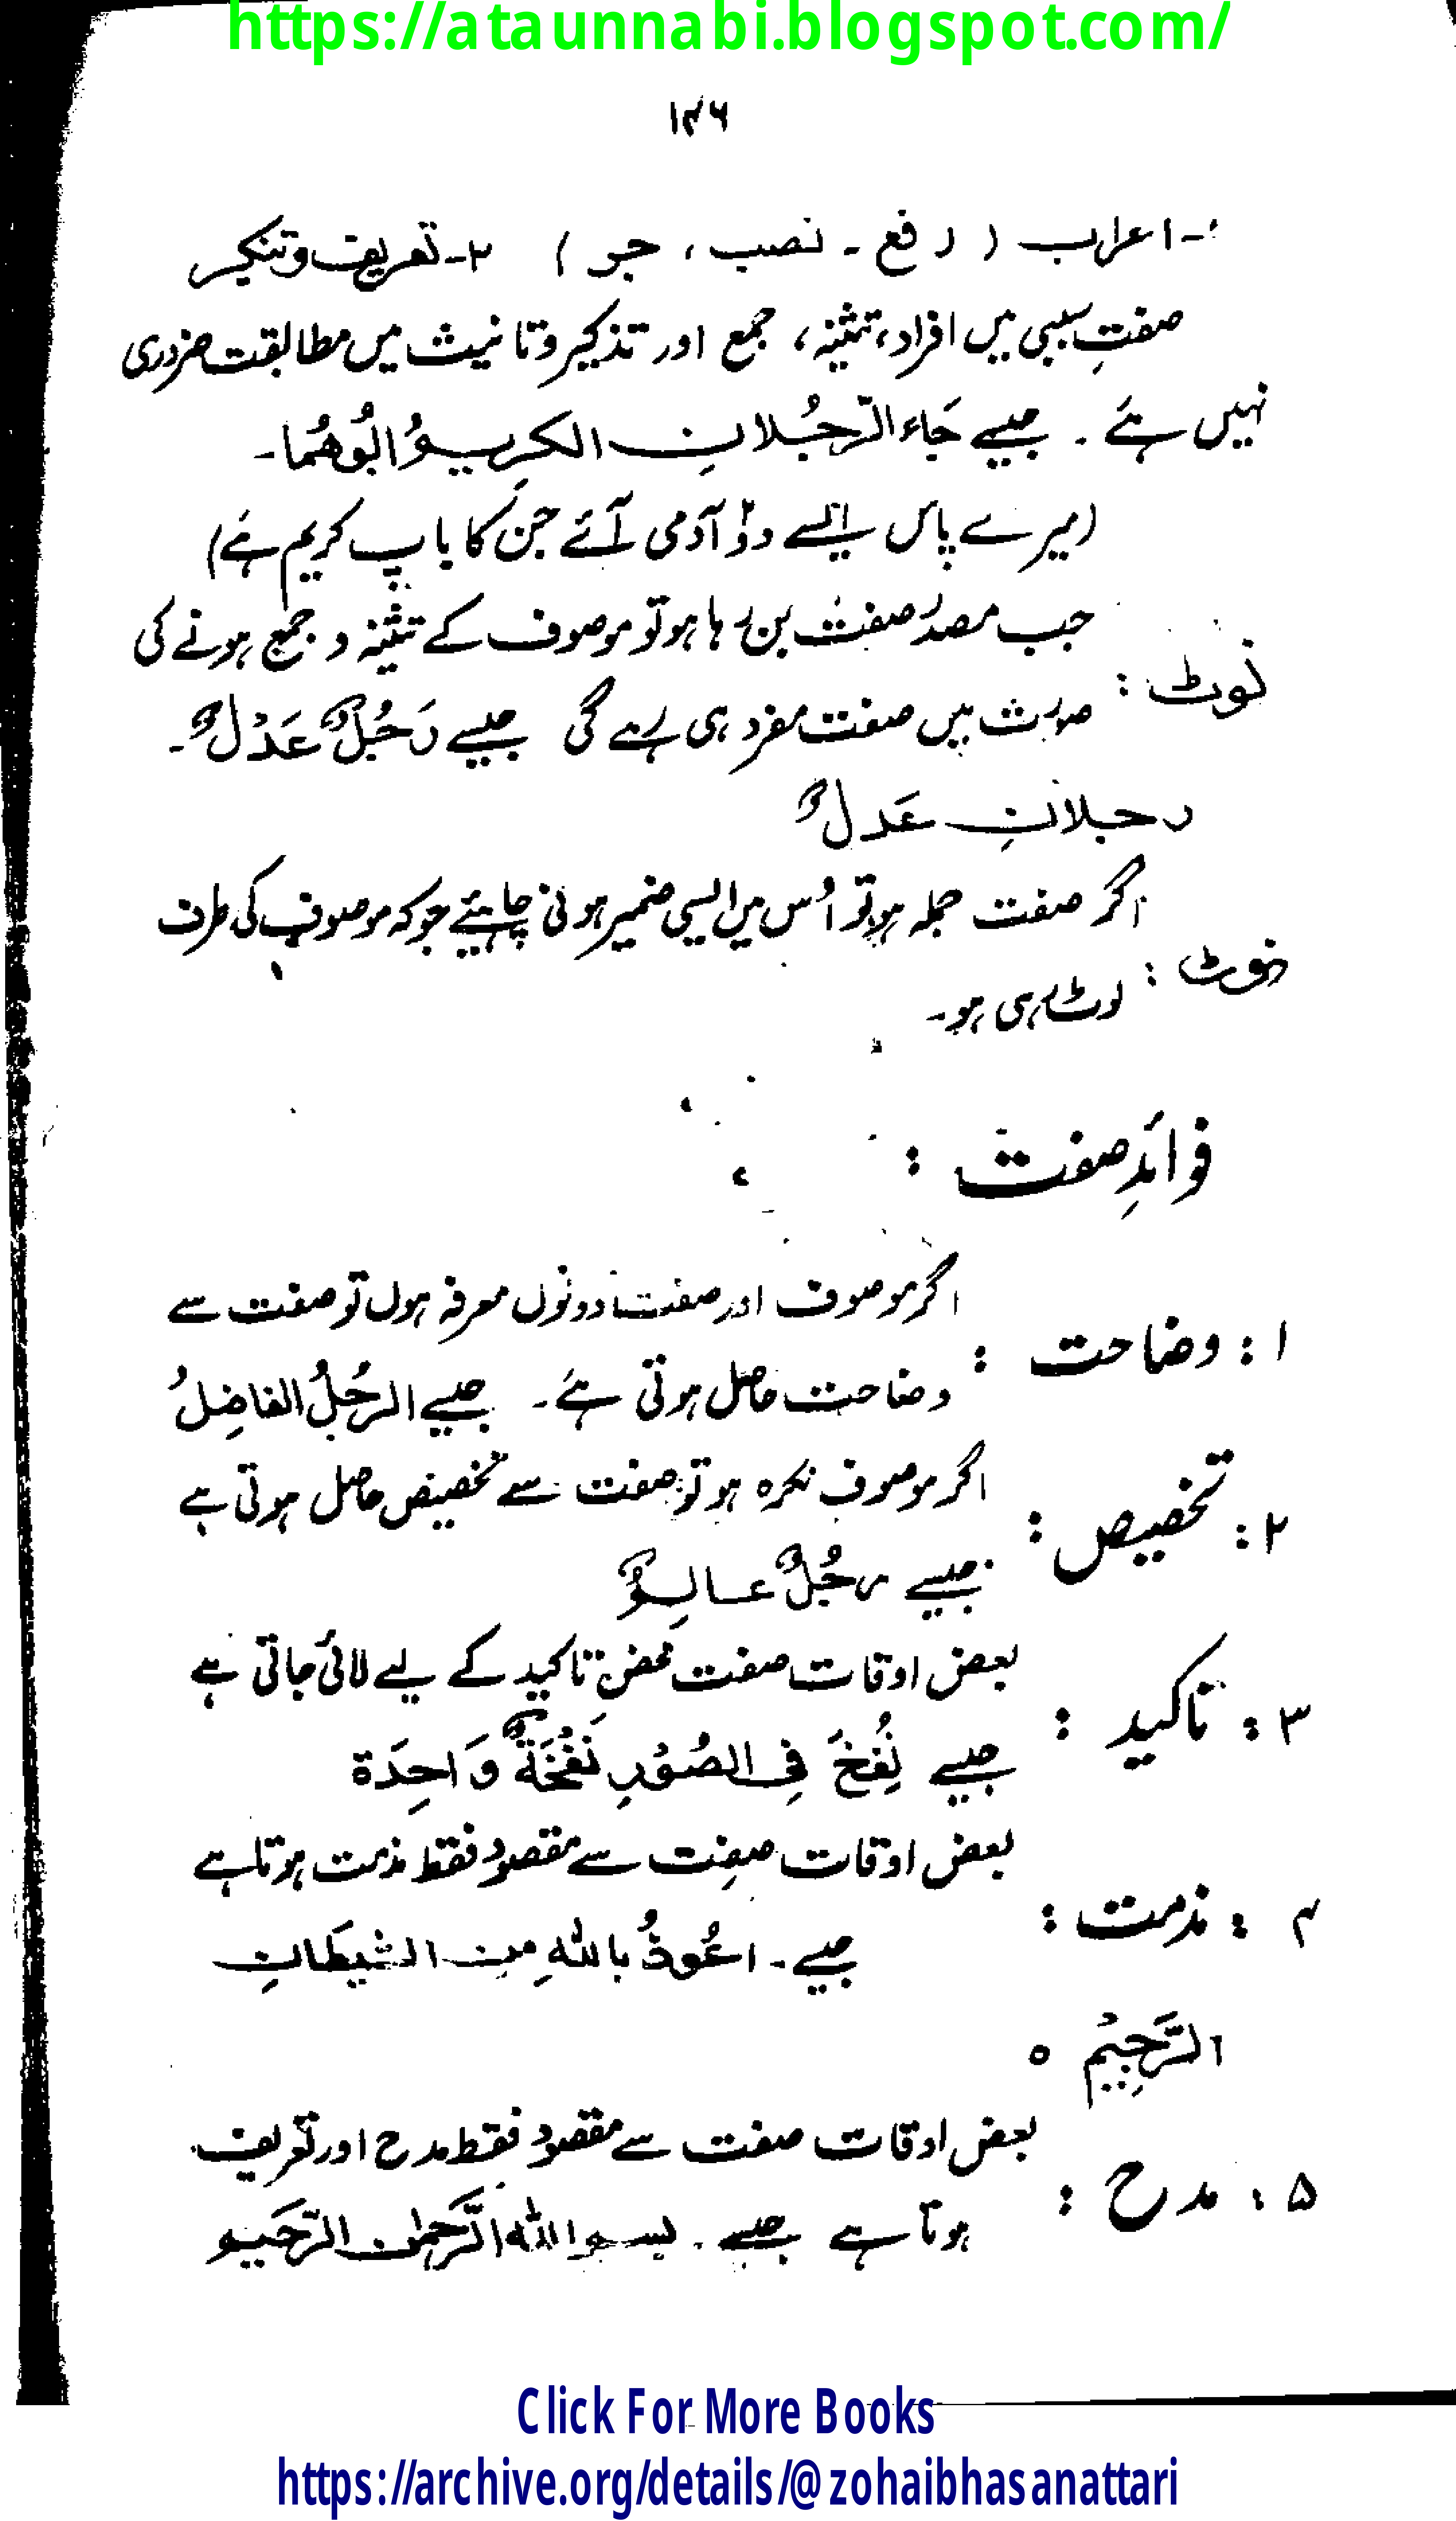 https://ataunnabi.blogspot.com/
۱۴۶
۱- اعراب ( رفع ـ نصب ، جر ) ۲- تعریف و تنکیر
صفتِ سببی میں افراد، تثنیہ، جمع اور تذکیر و تانیث میں مطابقت ضروری
نہیں ہے ۔ جیسے جَاءَ الرَّجُلانِ الکرِیمُ ابُوهُمَا۔
(میرے پاس ایسے دو آدمی آئے جن کا باپ کریم ہے)
نوٹ : جب مصدر صفت بن رہا ہو تو موصوف کے تثنیہ و جمع ہونے کی
صورت میں صفت مفرد ہی رہے گی جیسے رَجُلٌ عَدْلٌ ۔
رجلانِ عَدلٌ
نوٹ : اگر صفت جملہ ہو تو اُس میں ایسی ضمیر ہونی چاہیئے جو کہ موصوف کی طرف
لوٹ رہی ہو۔
فوائدِ صفت :
۱ : وضاحت : اگر موصوف اور صفت دونوں معرفہ ہوں تو صفت سے
وضاحت حاصل ہوتی ہے ۔ جیسے الرجُلُ الفاضِلُ
۲ : تخصیص : اگر موصوف نکرہ ہو تو صفت سے تخصیص حاصل ہوتی ہے
جیسے رجُلٌ عالِمٌ
۳ : تاکید : بعض اوقات صفت محض تاکید کے لیے لائی جاتی ہے
جیسے نُفِخَ فِی الصُوْرِ نَفْخَةٌ وَاحِدَة
۴ : مذمت : بعض اوقات صفت سے مقصود فقط مذمت ہوتا ہے
جیسے ۔ اعُوذُ باللهِ من الشیطَانِ
الرَّجِیْمِ ○
۵ : مدح : بعض اوقات صفت سے مقصود فقط مدح اور تعریف
ہوتا ہے جیسے ۔ بسم الله الرَّحمٰن الرَّحیم
Click For More Books
https://archive.org/details/@zohaibhasanattari